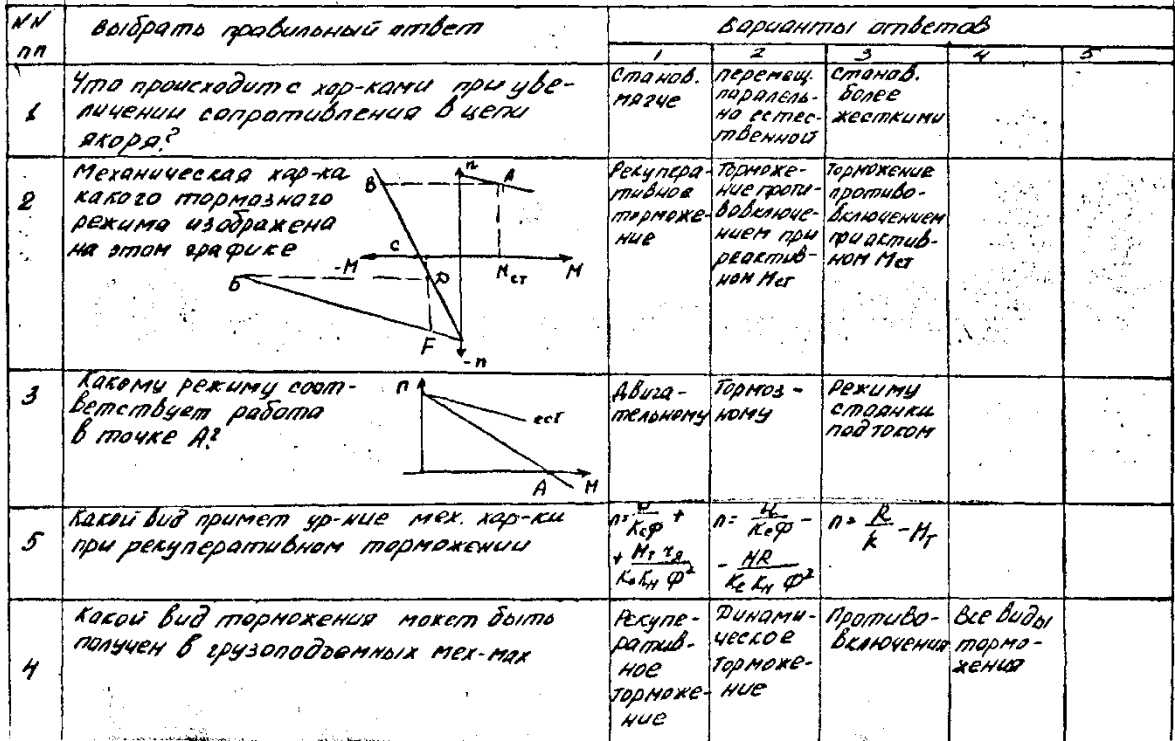 NN пп
выбрать правильный ответ
Варианты ответов
1 2 3 4 5
1
Что происходит с хар-ками при уве-
личении сопротивления в цепи
якоря?
Станов.
мягче
перемещ.
паралель-
но естес-
твенной
Станов.
более
жесткими
2
Механическая хар-ка
какого тормозного
режима изображена
на этом графике
n
A
B
C
-M
D
Mст
M
Б
F
-n
Рекупера-
тивное
торможе-
ние
Торможе-
ние проти-
вовключе-
нием при
реактив-
ном Мст
Торможение
противо-
включением
при актив-
ном Мст
3
Какому режиму соот-
ветствует работа
в точке А?
n
ест
A
M
Двига-
тельному
Тормоз-
ному
Режиму
стоянки
под током
5
Какой вид примет ур-ние мех. хар-ки
при рекуперативном торможении
n= U/KeФ +
+ Mт rя/Ke Kм Ф²
n= U/KeФ -
- MR/Ke Kм Ф²
n= R/k - Mт
4
Какой вид торможения может быть
получен в грузоподъемных мех-мах
Рекупе-
ратив-
ное
торможе-
ние
Динами-
ческое
торможе-
ние
Противо-
включения
Все виды
тормо-
жения